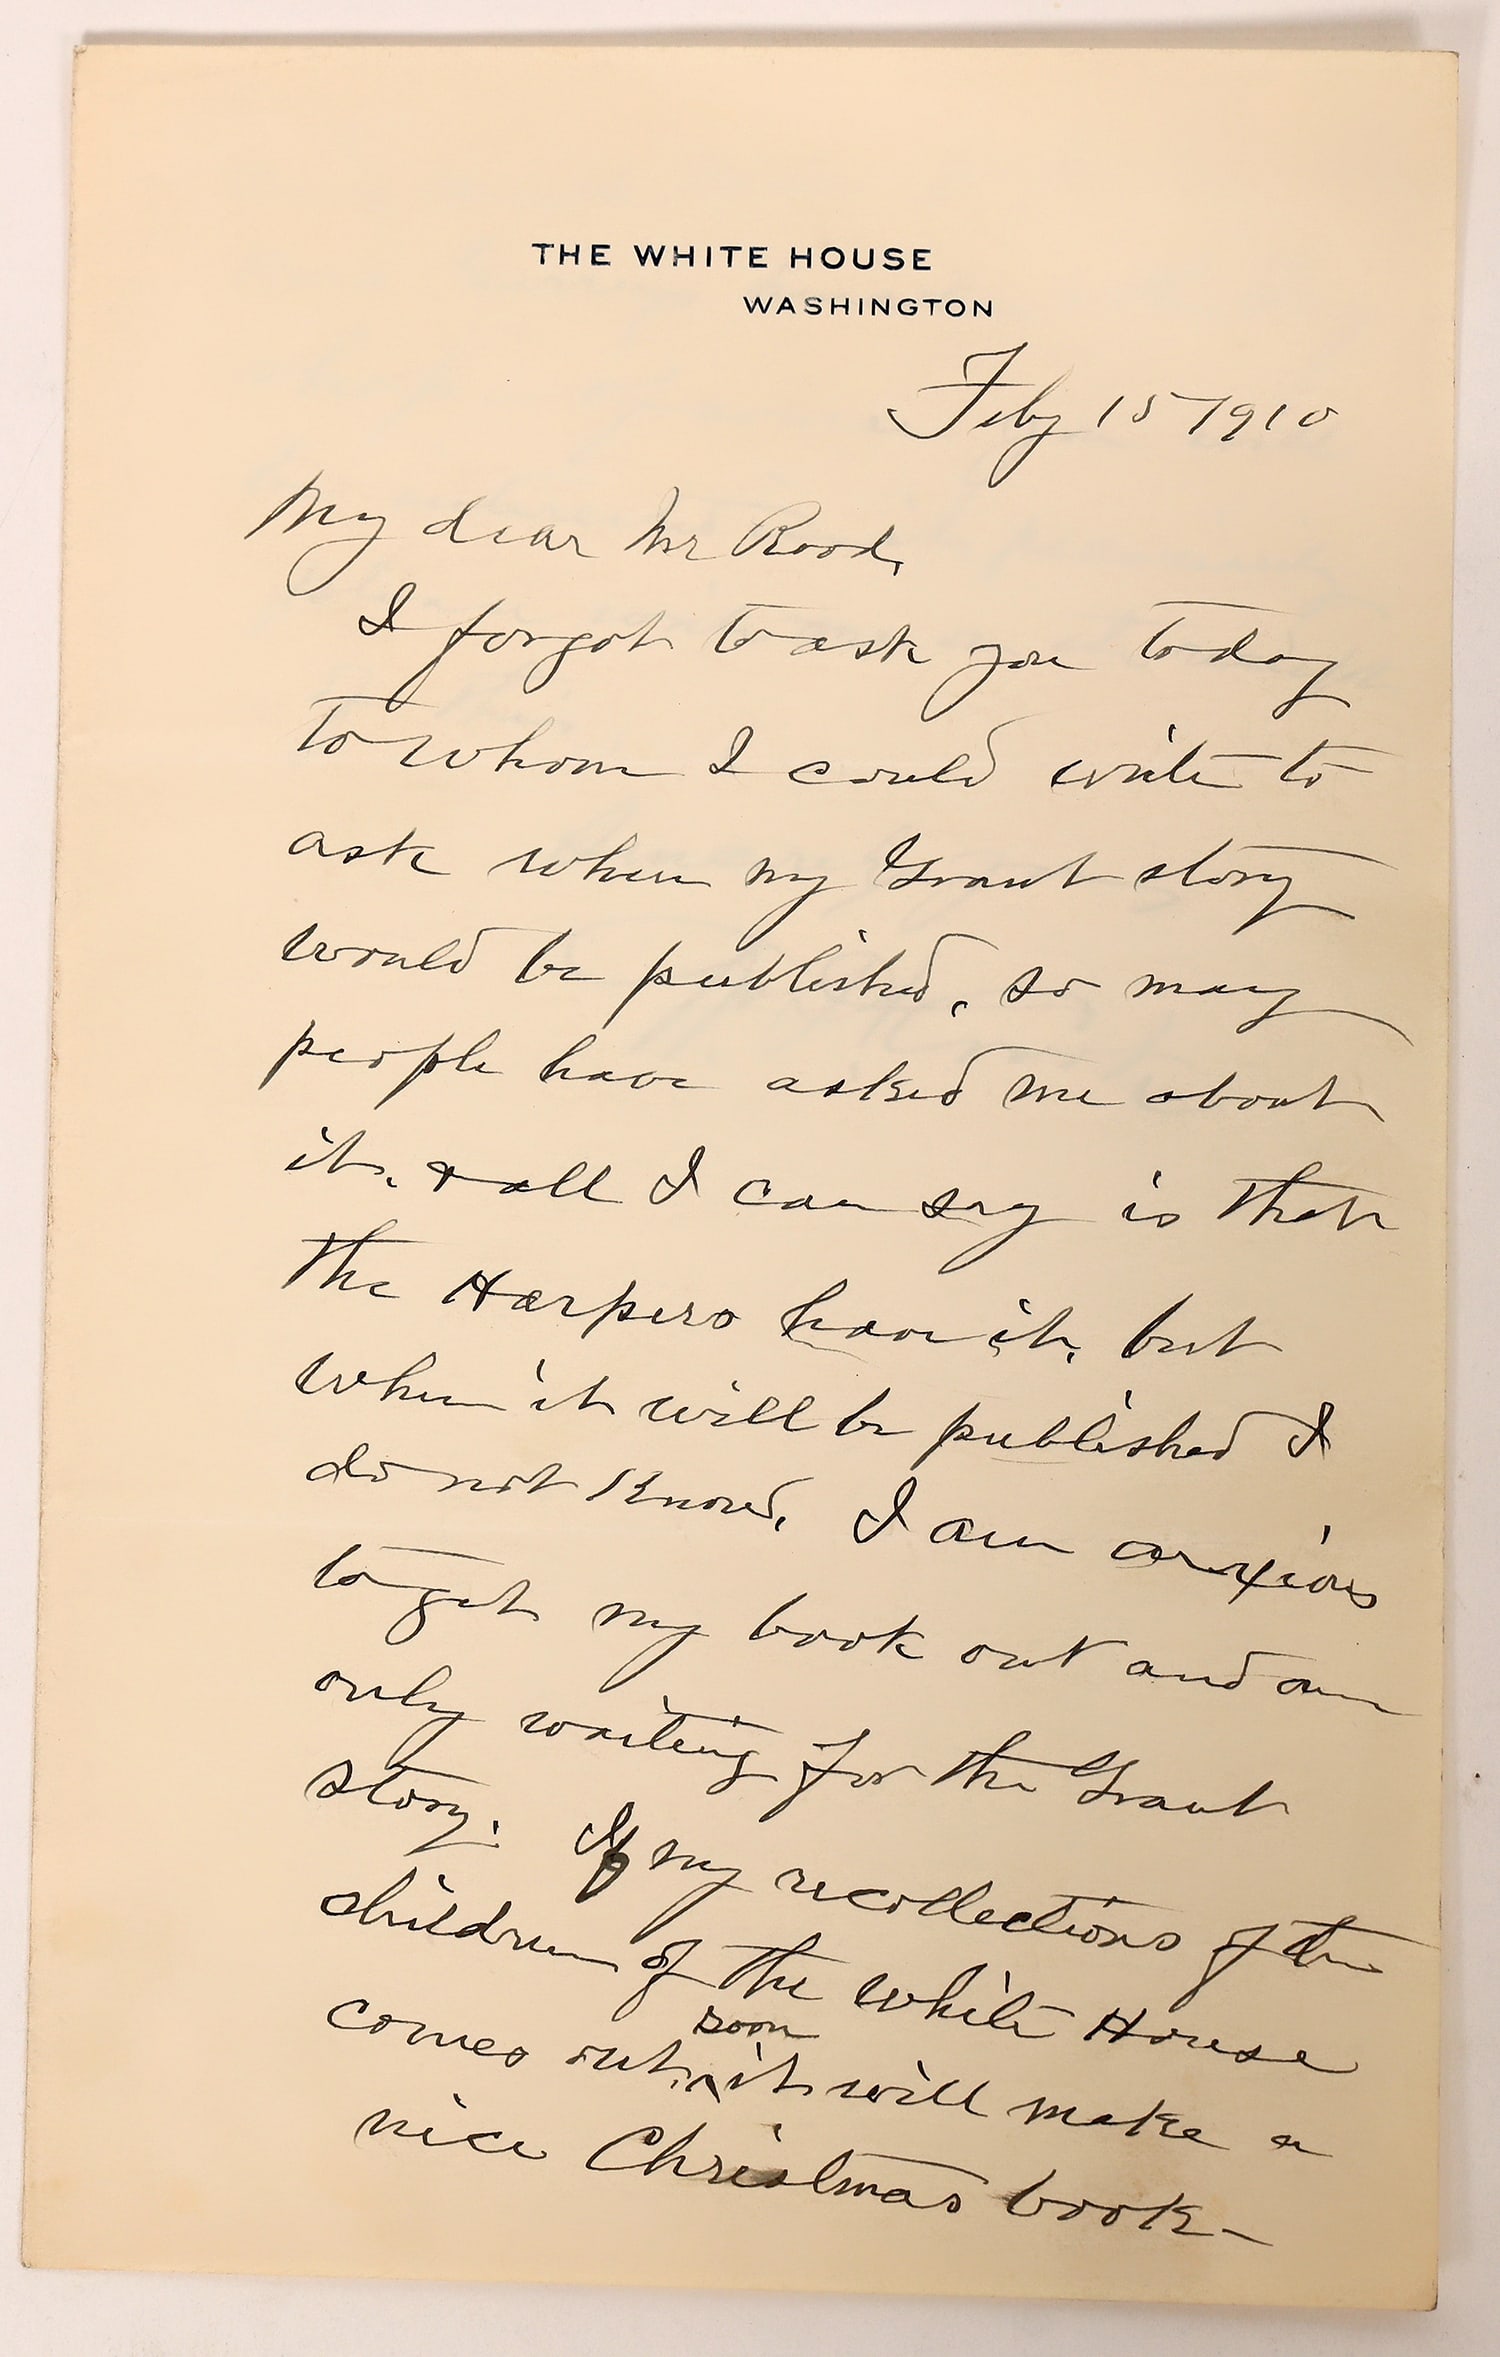 THE WHITE HOUSE
WASHINGTON
Feby 15 1910
My dear Mr Rood,
I forgot to ask you today
to whom I could write to
ask when my Grant story
would be published, so many
people have asked me about
it, & all I can say is that
the Harpers have it, but
when it will be published I
do not know. I am anxious
to get my book out and am
only waiting for the Grant
story. If my recollections of the
children of the White House
comes out soon it will make a
nice Christmas book-